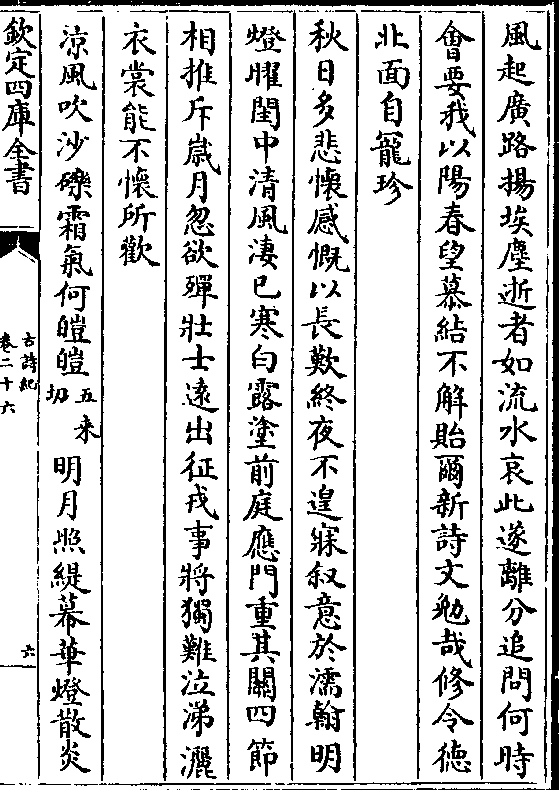 風起廣路揚埃塵逝者如流水哀此遂離分追問何時
會要我以陽春望慕結不解貽爾新詩文勉哉修令德
北面自寵珍
秋日多悲懷感慨以長歎終夜不遑寐叙意於濡翰明
燈曜閨中清風淒已寒白露塗前庭應門重其關四節
相推斥嵗月忽欲殫壯士遠出征戎事將獨難泣涕灑
衣裳能不懷所歡
涼風吹沙礫霜氣何皚皚五来切明月照緹幕華燈散炎
欽定四庫全書
古詩紀
卷二十六
六